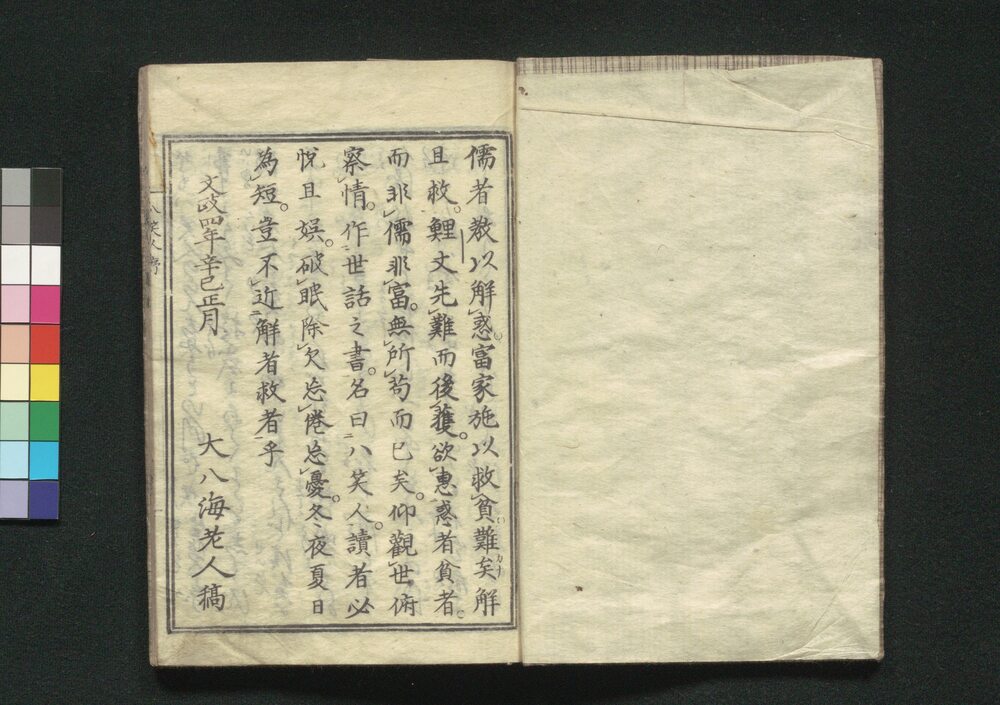 儒者教以解惑富家施以救貧難矣解
且救。鯉丈先難而後獲。欲惠惑者貧者。
而非儒非富。無所苟而已矣。仰觀世俯
察情。作世話之書。名曰八笑人。讀者必
悅且娯。破眠除欠忘倦忘憂。冬夜夏日
為短。豈不近解者救者乎
文政四年辛巳正月
大八海老人稿
八笑人序